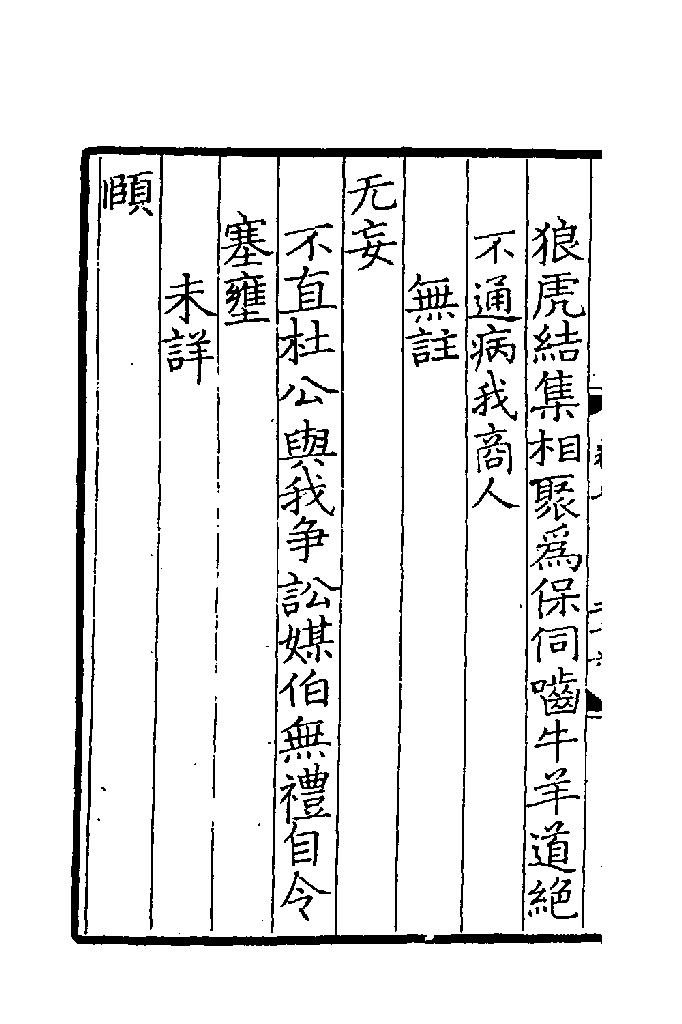 狼虎結集相聚為保伺嚙牛羊道絶
不通病我商人
無註
无妄
不直杜公與我争訟媒伯無禮自令
塞壅
未詳
頤